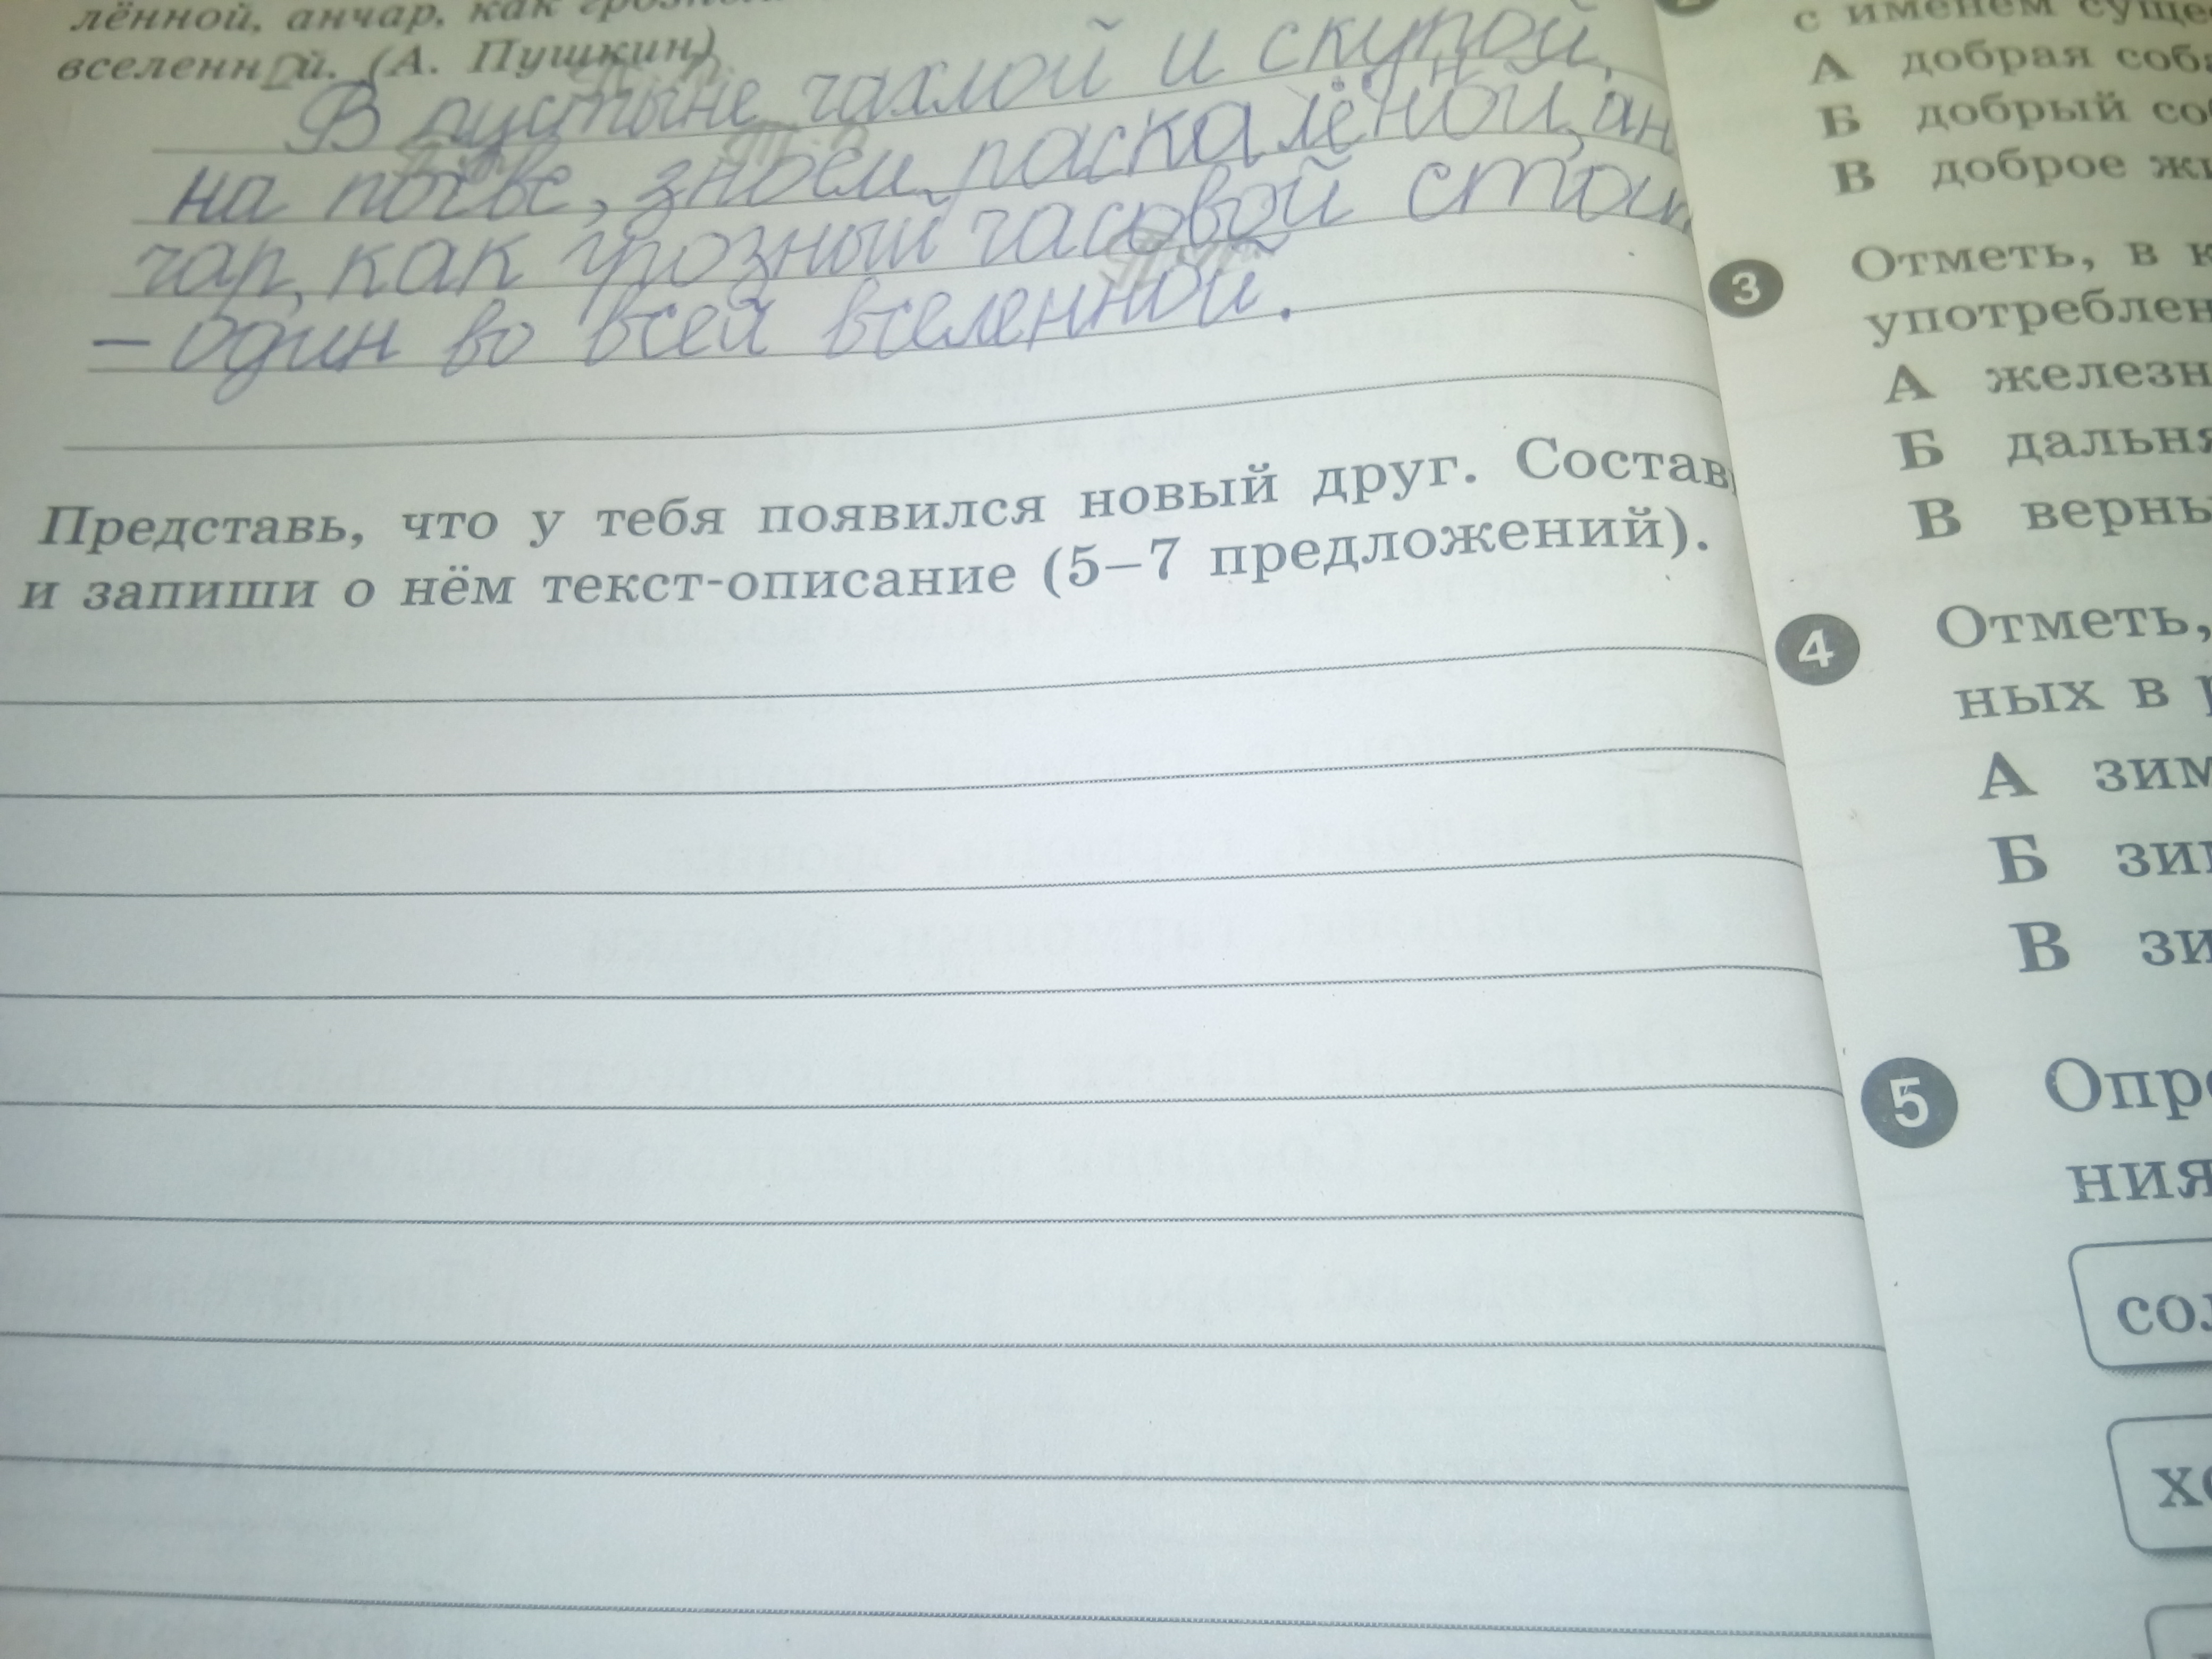 лённой, анчар, как
вселенной. (А. Пушкин)
В пустыне чахлой и скупой,
на почве, зноем раскалённой, ан
чар, как грозный часовой стоит
– один во всей вселенной.
Представь, что у тебя появился новый друг. Состав
и запиши о нём текст-описание (5–7 предложений).
с именем суще
А добрая соба
Б добрый со
В доброе жи
3 Отметь, в к
употреблен
А железн
Б дальня
В верны
4 Отметь,
ных в р
А зим
Б зи
В зи
5 Опре
ния
сол
хо